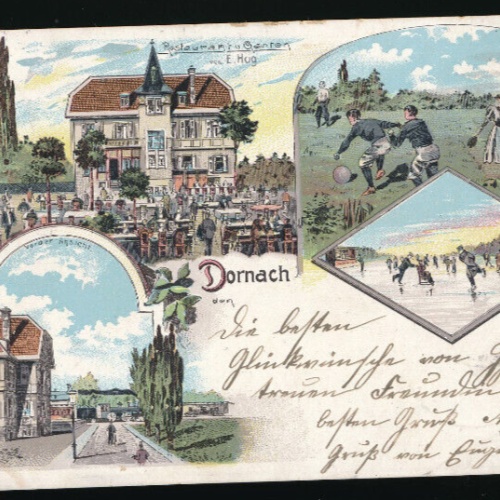 Restaurant u. Garten
von E. Hug
Vorder Ansicht
Dornach
den
Die besten
Glückwünsche von
treuen Freundin
besten Gruß
Gruß von Euge